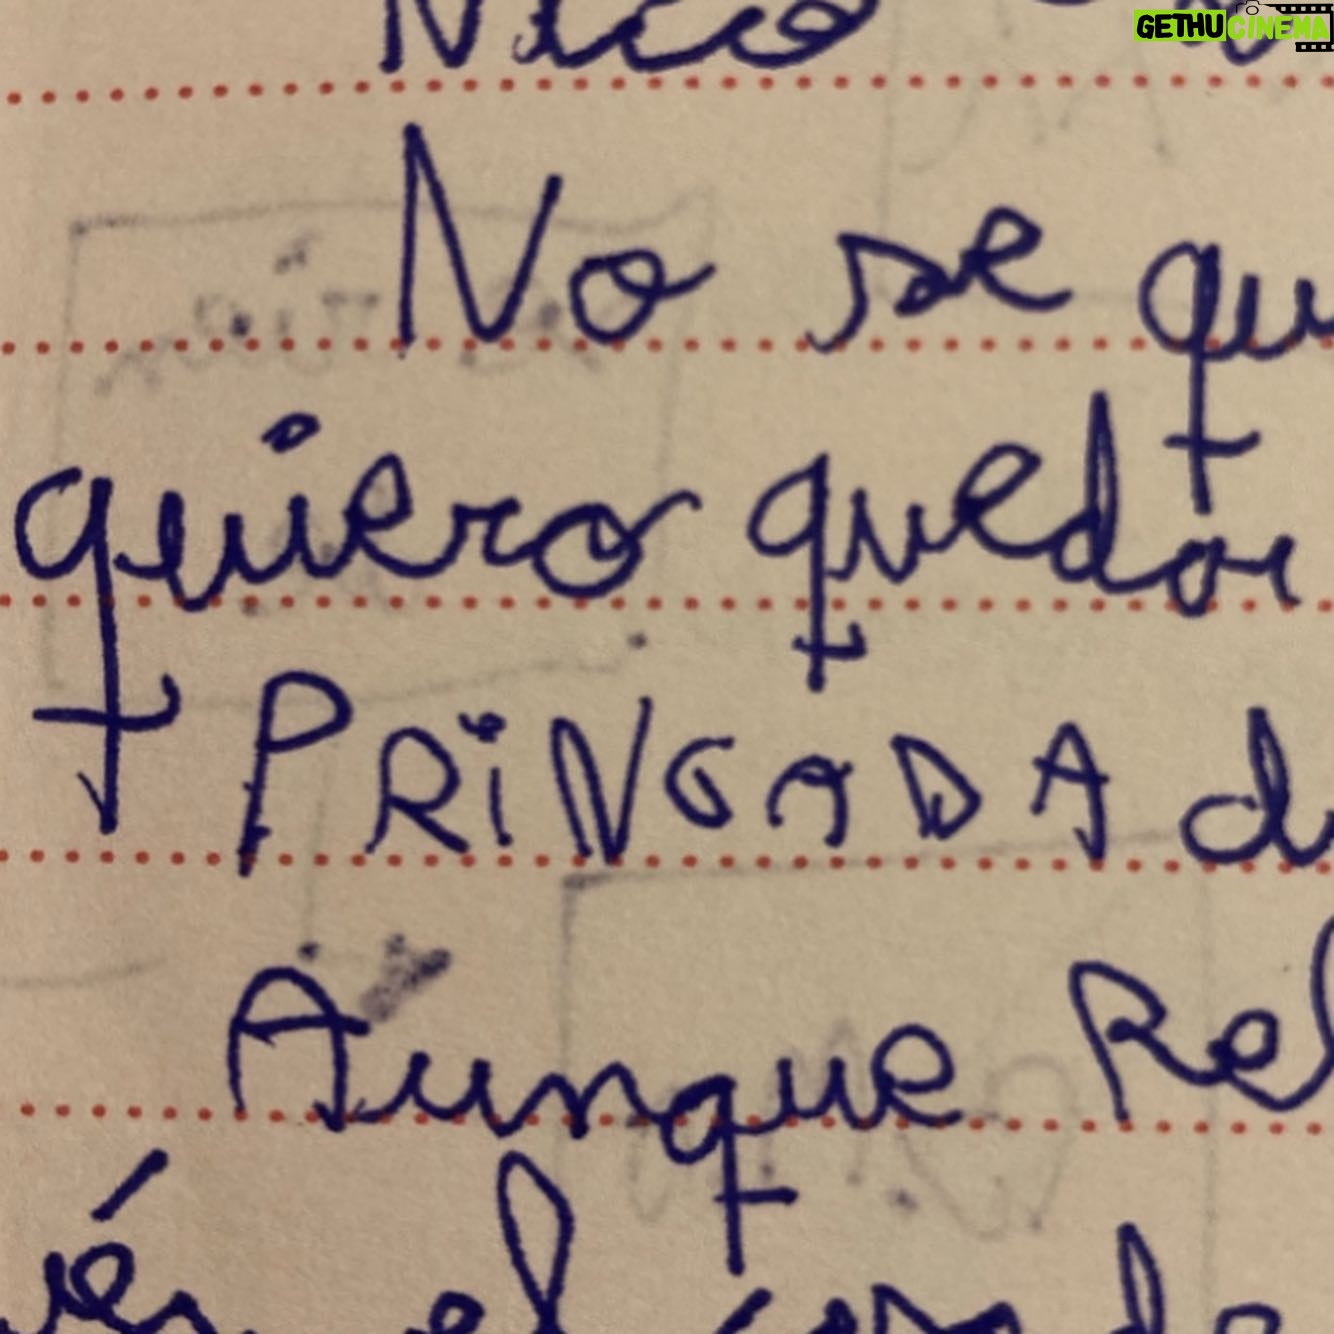 GETHU CINEMA
No se qu
quiero quedar
PRINGADA d
Aunque Rel
el